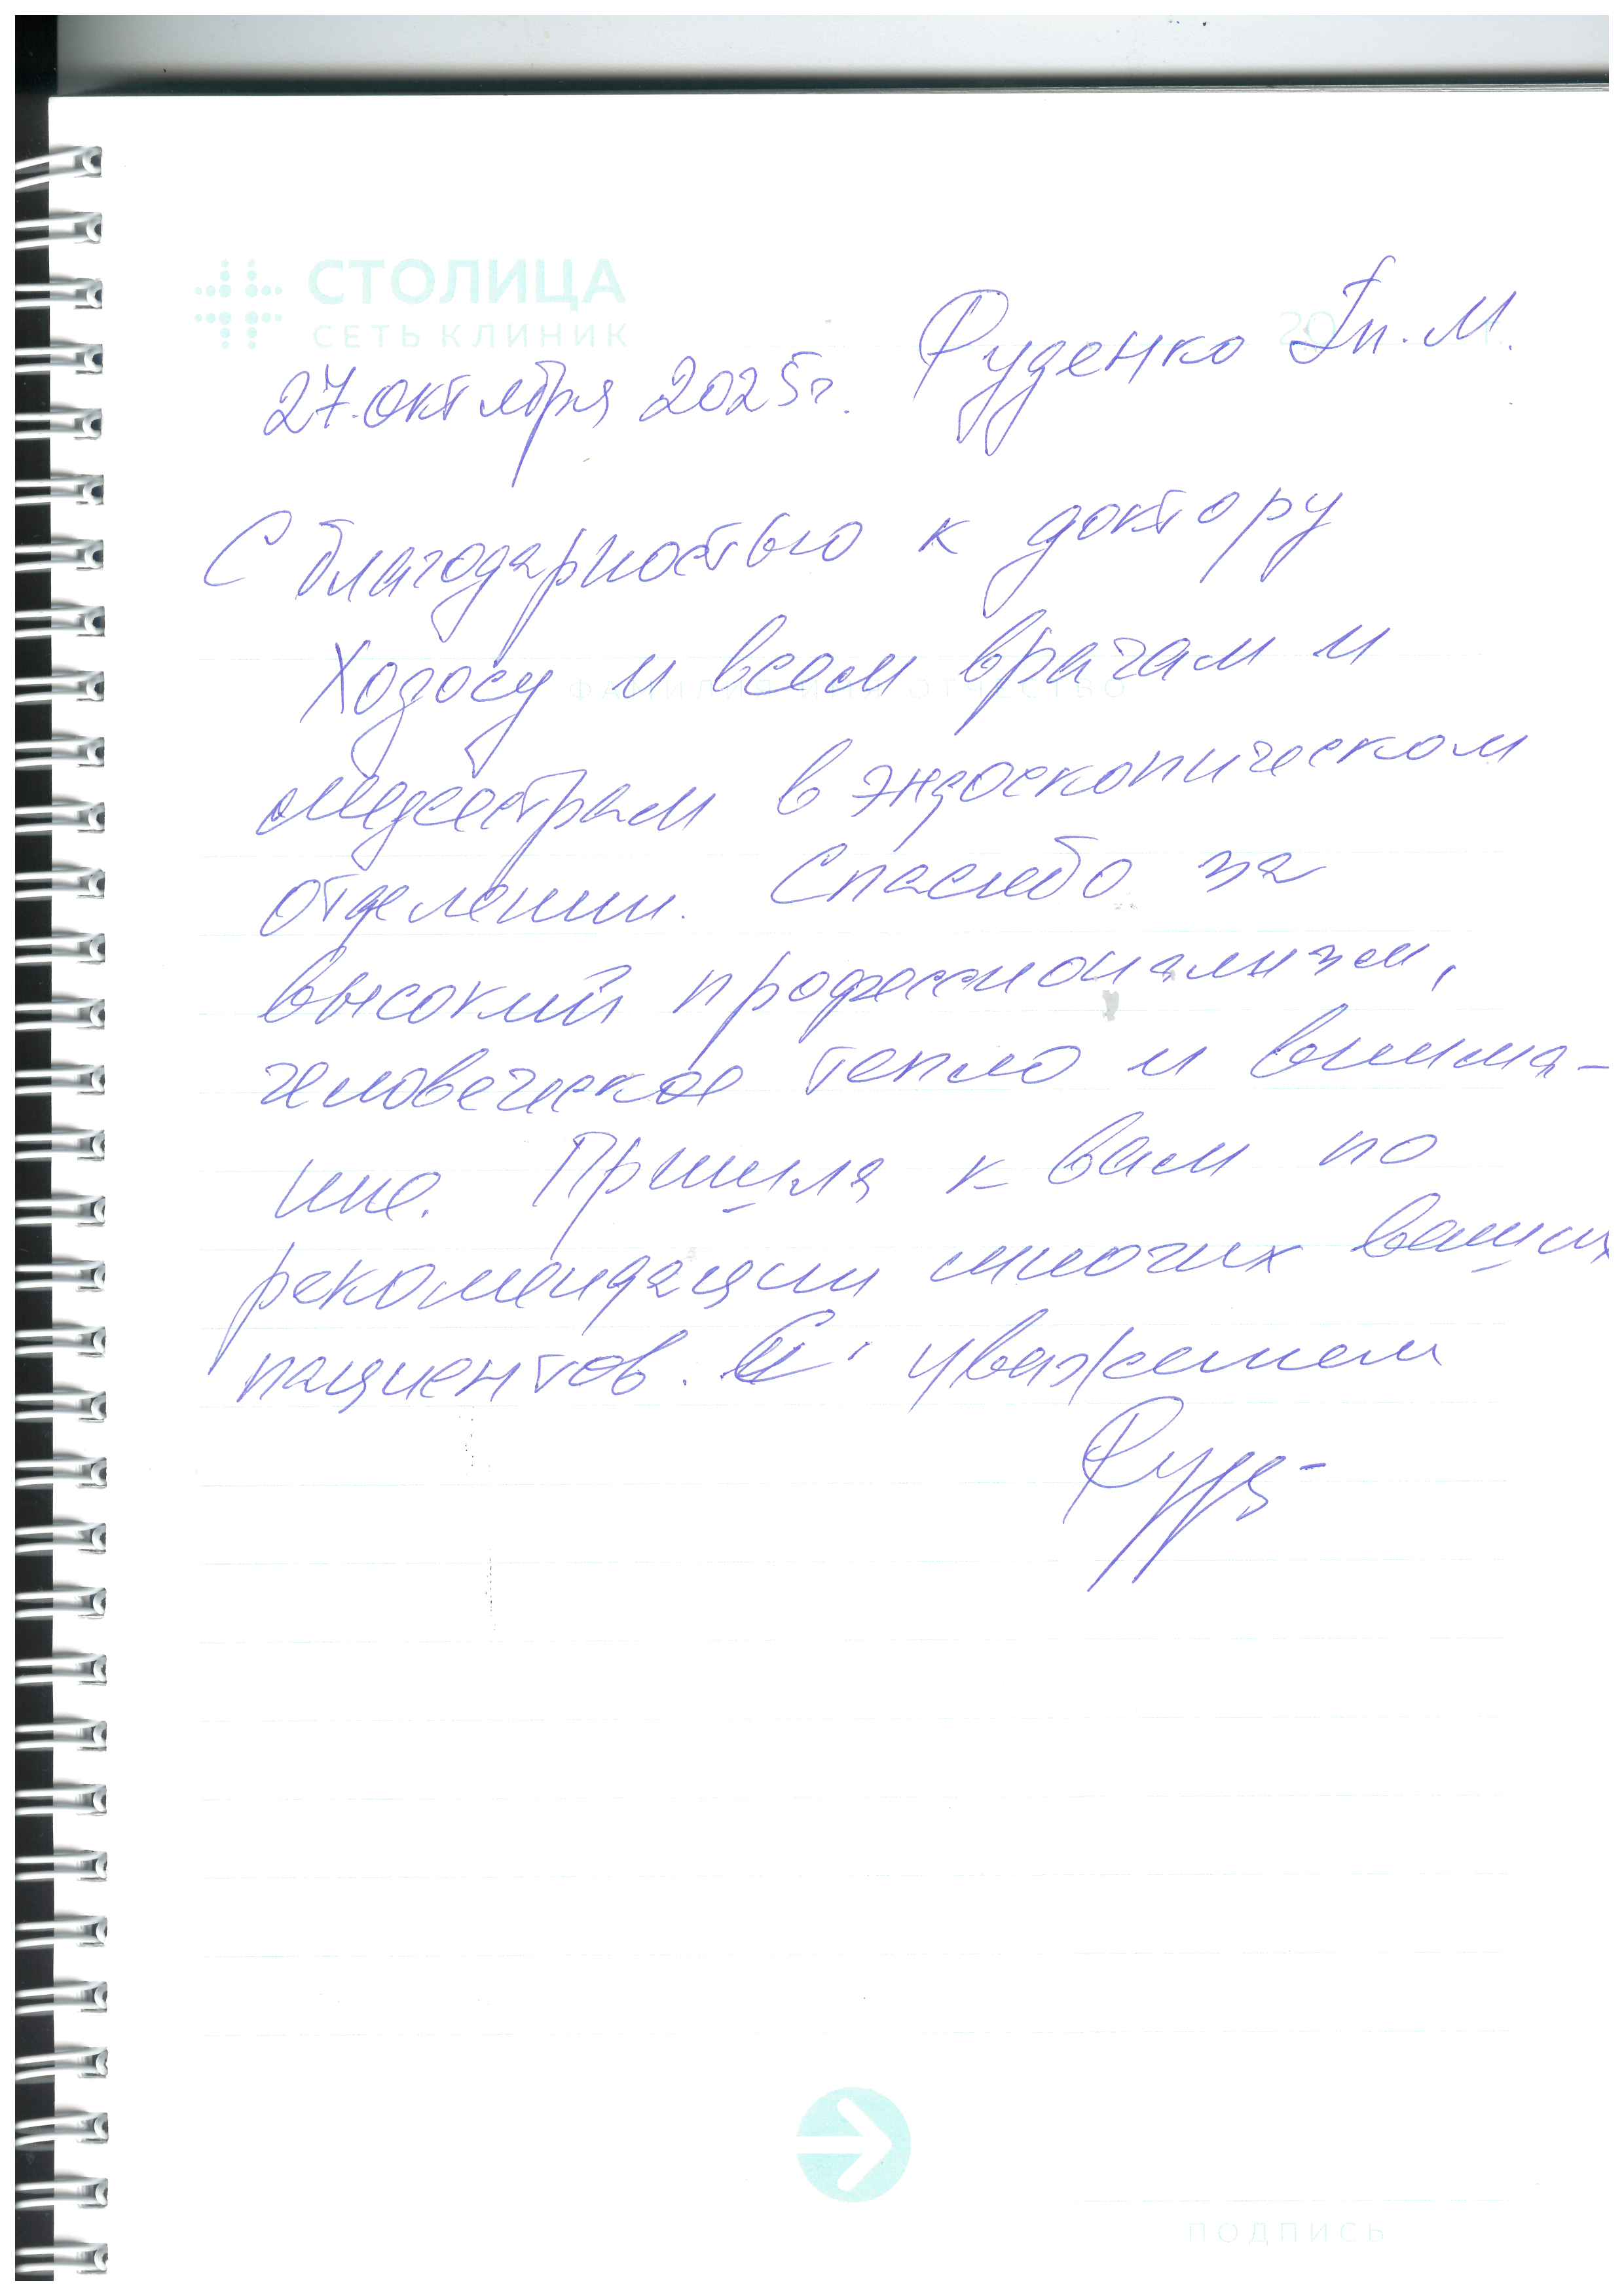 СТОЛИЦА
СЕТЬ КЛИНИК
20
27.октября 2025г. Руденко Гп. М.
С благодарностью к доктору
Хозосу и всем врачам и
ФАМИЛИЯ ИМЯ ОТЧЕСТВО
медсестрам в эндоскопическом
отделении. Спасибо за
высокий профессионализм,
человеческое тепло и внима-
ние. Пришла к вам по
рекомендации многих ваших
пациентов. С уважением
ПОДПИСЬ